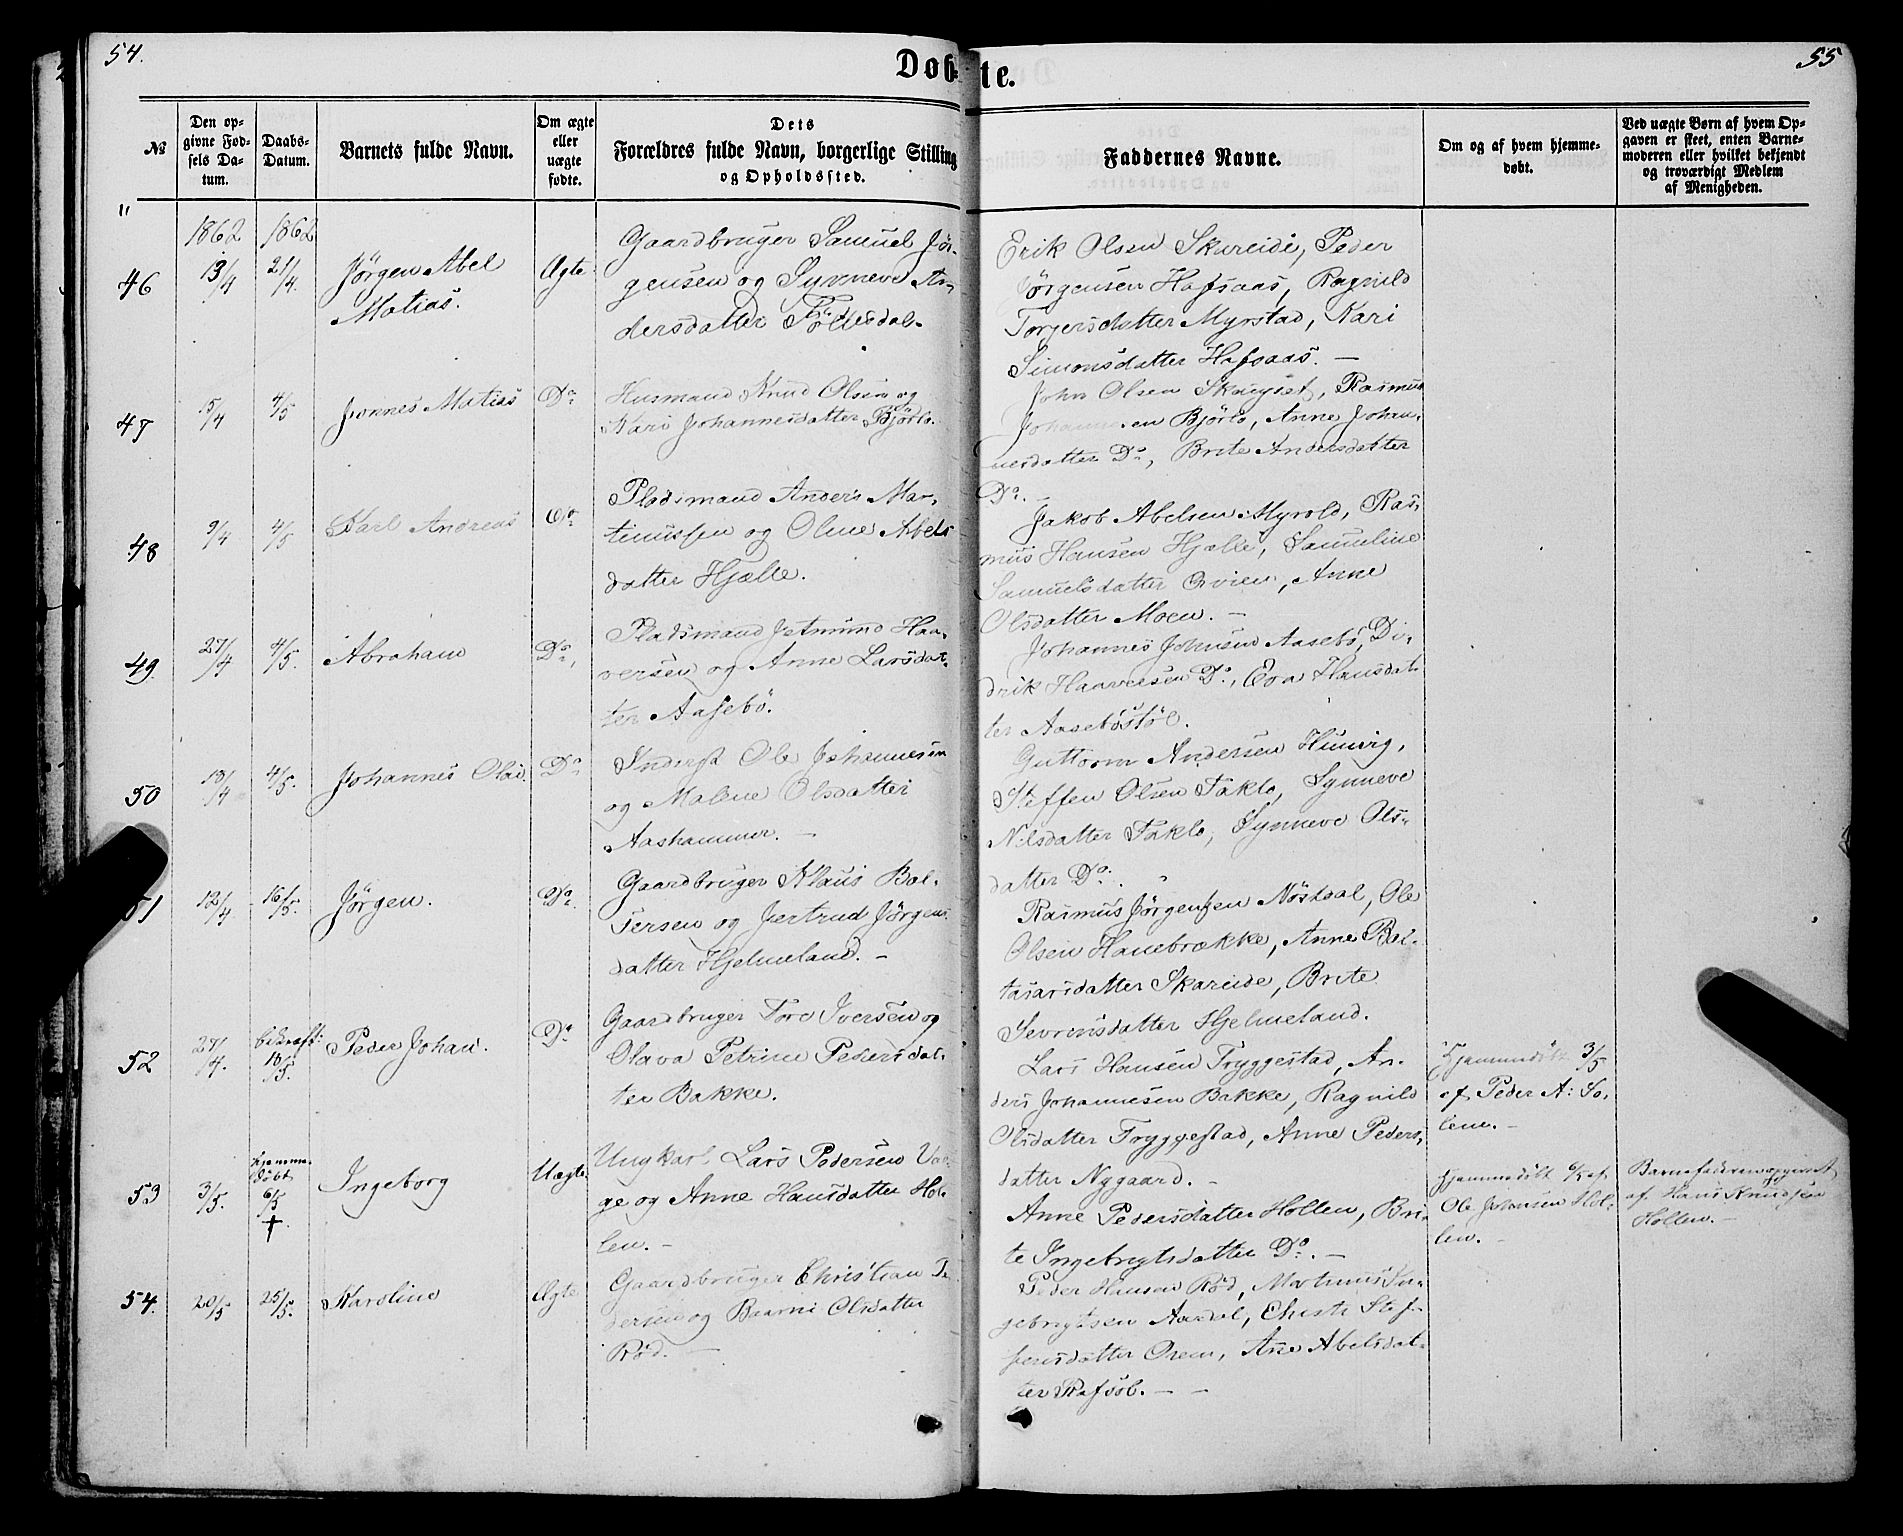 54.
Døb-
te.
55
№
Den op-
givne Fød-
sels Da-
tum.
Daabs-
Datum.
Barnets fulde Navn.
Om ægte
eller
uægte
fødte.
Dets
Forældres fulde Navn, borgerlige Stilling
og Opholdssted.
Faddernes Navne.
Om og af hvem hjemme-
døbt.
Ved uægte Børn af hvem Op-
gaven er skeet, enten Barne-
moderen eller hvilket bekjendt
og troværdigt Medlem
af Menigheden.
"
1862 1862
46
13/4
21/4.
Jørgen Abel
Matias.
Ægte
Gaardbruger Samuel Jør-
gensen og Synneve An-
dersdatter
Erik Olsen Skareide, Peder
Jørgensen Hafsaas, Ragnild
Torgersdatter Myrstad, Kari
Simonsdatter Hafsaas. —
47
15/4
4/5
Jonnes Matias
Do
Husmand Knud Olsen og
Kari Johannesdatter Bjørlo.
John Olsen Rasmus
Johannesen Bjørlo, Anne Johan-
nesdatter Do, Brite Andersdatter
Do. —
48
9/4
4/5
Karl Andreas
Do
Pladsmand Anders Mar-
tinussen og Oline Abels
datter Hjelle.
Jakob Abelsen Myrold, Ras-
mus Hansen Hjelle, Samueline
Samuelsdatter Anne
Olsdatter Moen. —
49
27/4
4/5.
Abraham
Do,
Pladsmand Jetmund Haa-
versen og Anne Larsdat-
ter Aasebø.
Johannes Johnsen Aasebø, Di-
drik Haaversen Do, Eva Hansdat-
ter Aasebøstøl.
50
13/4
4/5.
Johannes Olai.
Do
Inderst Ole Johannesen
og Malene Olsdatter
Aashammer. —
Guttorm Andersen Hunvig,
Steffen Olsen Taklo, Synneve
Nilsdatter Taklo, Synneve Ols-
datter Do.
51
12/4
16/5.
Jørgen.
Do.
Gaardbruger Klaus Bal-
tersen og Jertrud Jørgens
datter Hjelmeland. —
Rasmus Jørgensen Nøstdal, Ole
Olsen Hanebrække, Anne Bal-
tasarsdatter Skareide, Brite
Sevrinsdatter Hjelmeland.
52
27/4.
bekræft:
18/5.
Peder Johan.
Do
Gaardbruger Tore Iversen og
Olava Petrine Pedersdat-
ter Bakke.
Lars Hansen Tryggestad, An-
ders Johannesen Bakke, Ragnild
Olsdatter Tryggestad, Anne Peders-
datter Nygaard. —
Hjemmedøbt 3/5
af Peder A: So-
lem. —
53
3/5.
hjemme-
døbt
6/5
†
Ingeborg
Uægte
Ungkarl Lars Pedersen
ge og Anne Hansdatter Hol-
ten. —
Anne Pedersdatter Holten, Bri-
te Ingebrigtsdatter Do. —
hjemmedøbt 6/5 af
Ole Johnsen Hol-
ten. —
Barnefaderen opgivet
af Hans Knudsen
Holten. —
54.
20/5
25/5.
Karoline
Ægte
Gaardbruger Christian Pe-
dersen og Olsdatter
Rød. —
Peder Hansen Rød, Martinus In-
gebrigtsen Aardal, Christi Stef-
fensdatter Osen, Ane Abelsdat-
ter — —